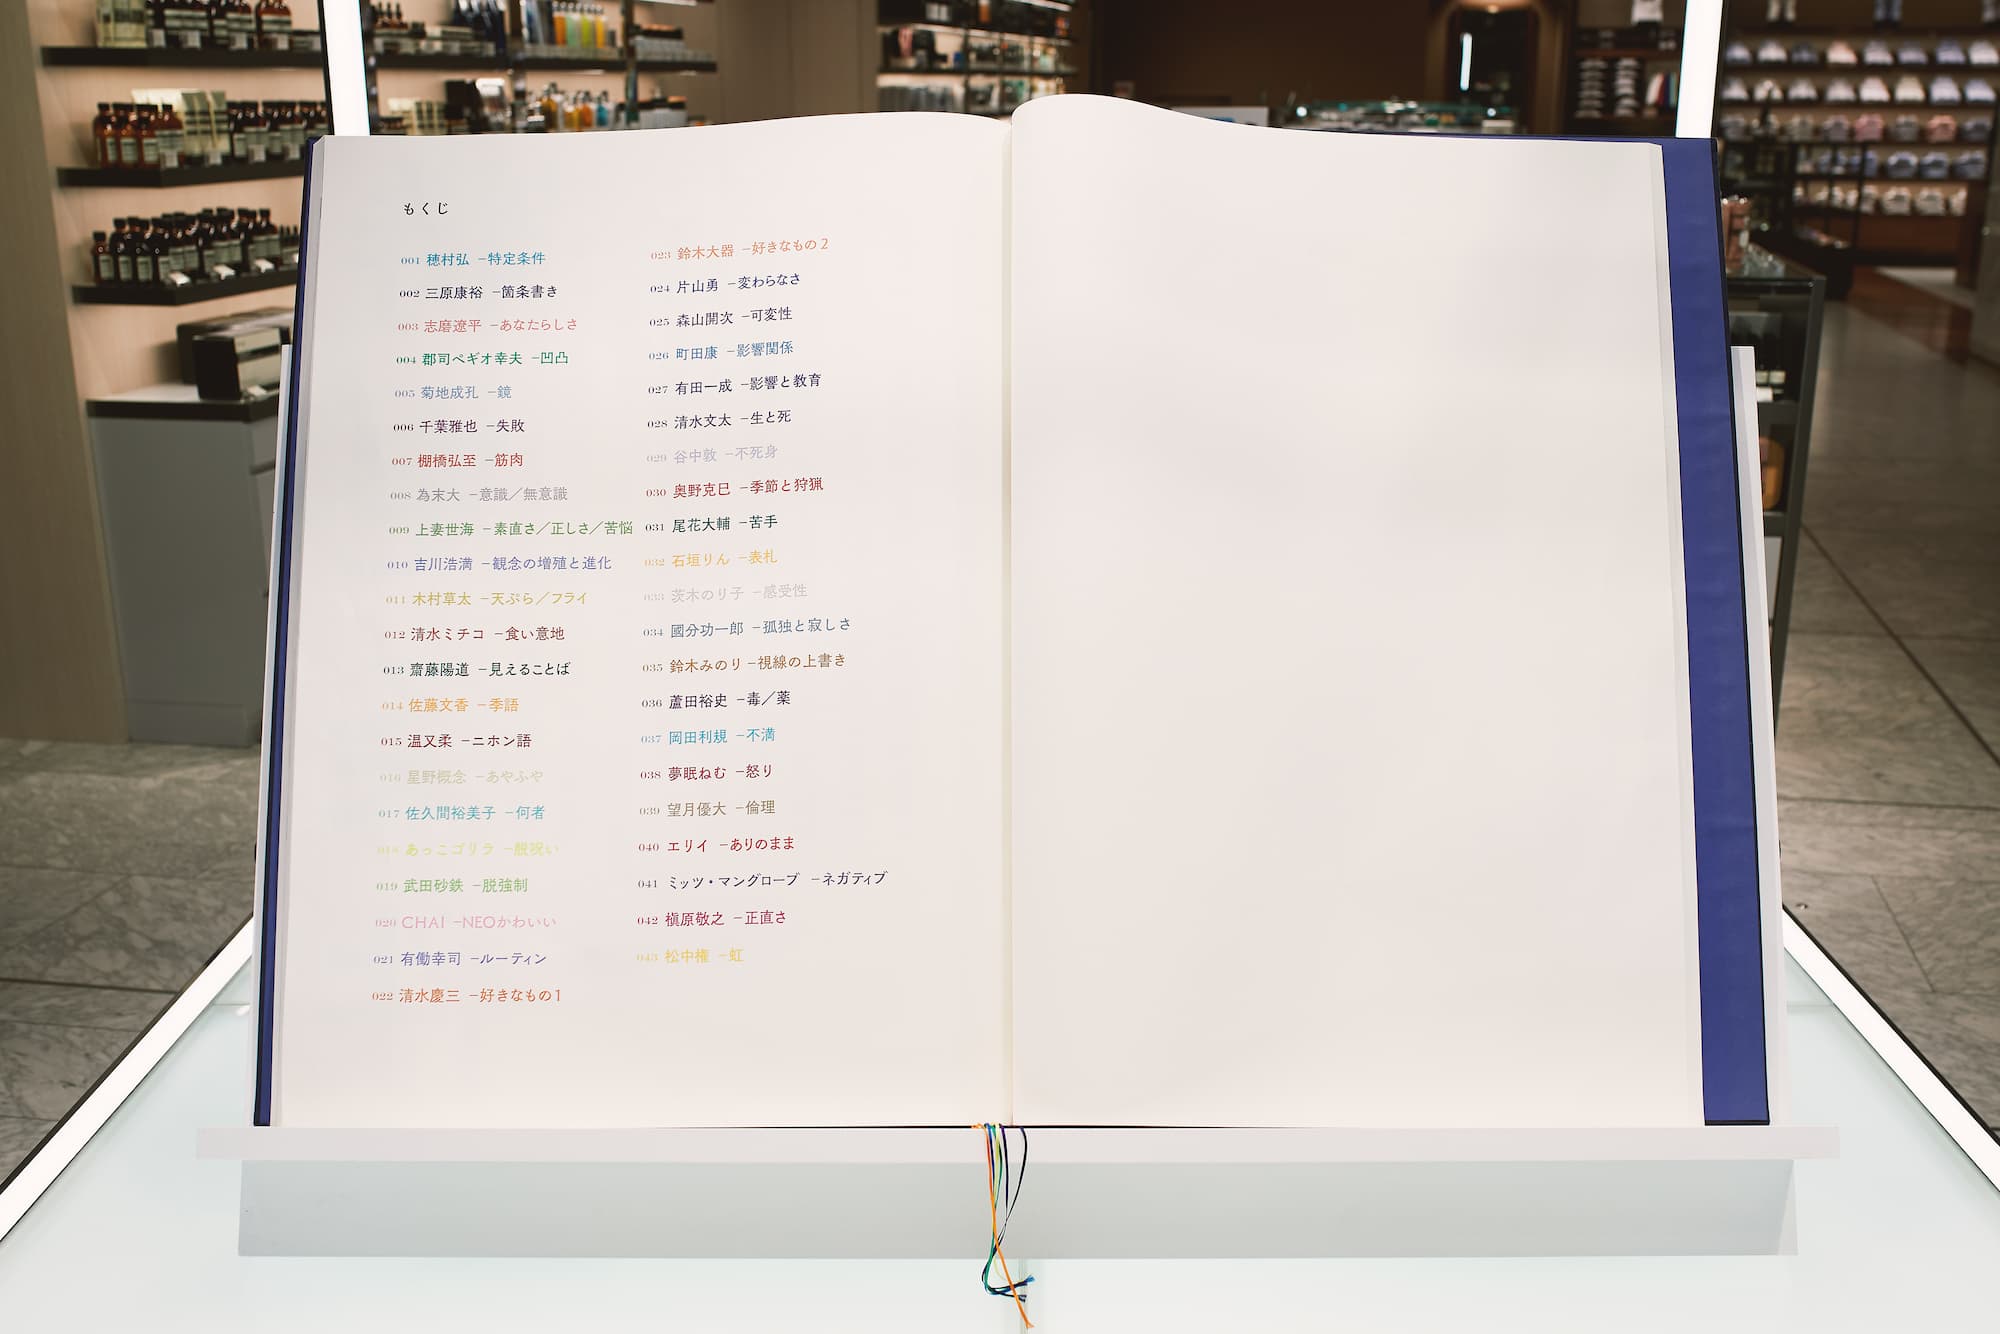 もくじ
001 穂村弘 −特定条件
002 三原康裕 −箇条書き
003 志磨遼平 −あなたらしさ
004 郡司ペギオ幸夫 −凹凸
005 菊地成孔 −鏡
006 千葉雅也 −失敗
007 棚橋弘至 −筋肉
008 為末大 −意識／無意識
009 上妻世海 −素直さ／正しさ／苦悩
010 吉川浩満 −観念の増殖と進化
011 木村草太 −天ぷら／フライ
012 清水ミチコ −食い意地
013 齋藤陽道 −見えることば
014 佐藤文香 −季語
015 温又柔 −ニホン語
016 星野概念 −あやふや
017 佐久間裕美子 −何者
018 あっこゴリラ −脱呪い
019 武田砂鉄 −脱強制
020 CHAI −NEOかわいい
021 有働幸司 −ルーティン
022 清水慶三 −好きなもの1
023 鈴木大器 −好きなもの2
024 片山勇 −変わらなさ
025 森山開次 −可変性
026 町田康 −影響関係
027 有田一成 −影響と教育
028 清水文太 −生と死
029 谷中敦 −不死身
030 奥野克巳 −季節と狩猟
031 尾花大輔 −苦手
032 石垣りん −表札
033 茨木のり子 −感受性
034 國分功一郎 −孤独と寂しさ
035 鈴木みのり −視線の上書き
036 蘆田裕史 −毒／薬
037 岡田利規 −不満
038 夢眠ねむ −怒り
039 望月優大 −倫理
040 エリイ −ありのまま
041 ミッツ・マングローブ −ネガティブ
042 槇原敬之 −正直さ
043 松中権 −虹